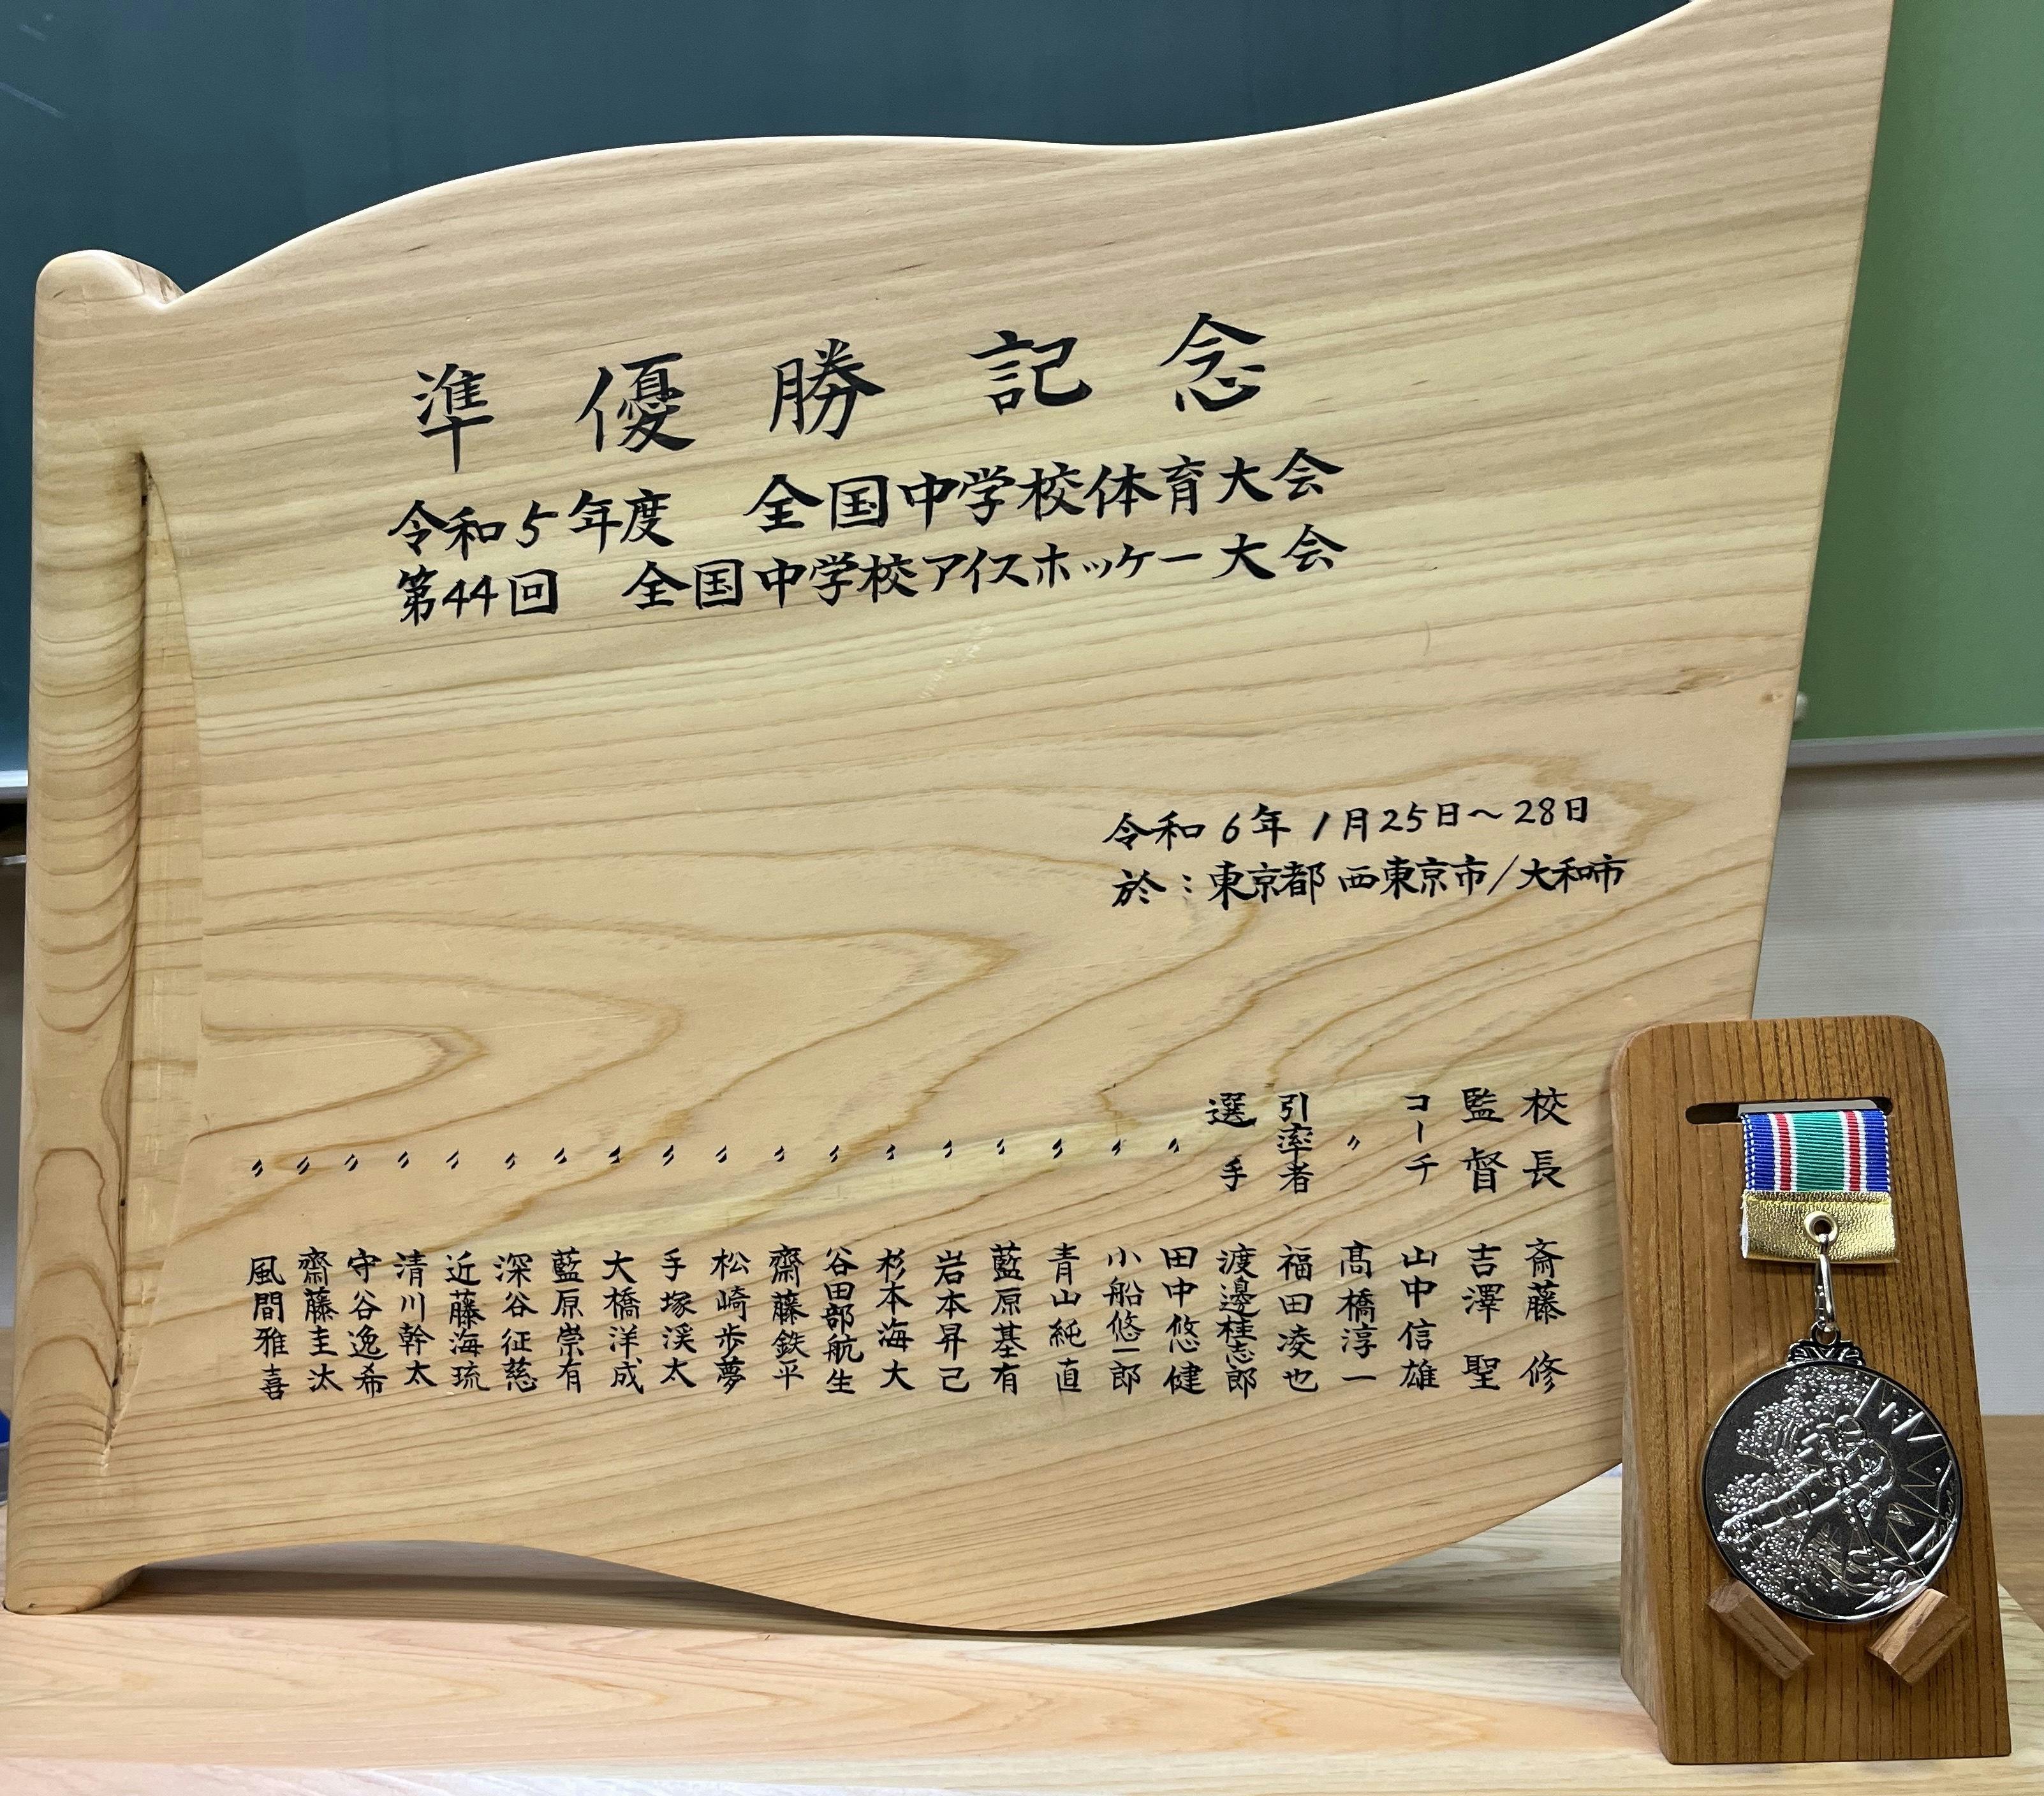 準優勝記念
令和5年度 全国中学校体育大会
第44回 全国中学校アイスホッケー大会
令和6年1月25日～28日
於：東京都 西東京市/大和市
校長 斎藤 修
監督 吉澤 聖
コーチ 山中信雄
〃 髙橋淳一
引率者 福田凌也
選手 渡邊桂志郎
〃 田中悠健
〃 小船悠一郎
〃 青山純直
〃 藍原基有
〃 岩本昇己
〃 杉本海大
〃 谷田部航生
〃 齋藤鉄平
〃 松崎歩夢
〃 手塚渓太
〃 大橋洋成
〃 藍原崇有
〃 深谷征慈
〃 近藤海琉
〃 清川幹太
〃 守谷逸希
〃 齋藤圭汰
〃 風間雅喜